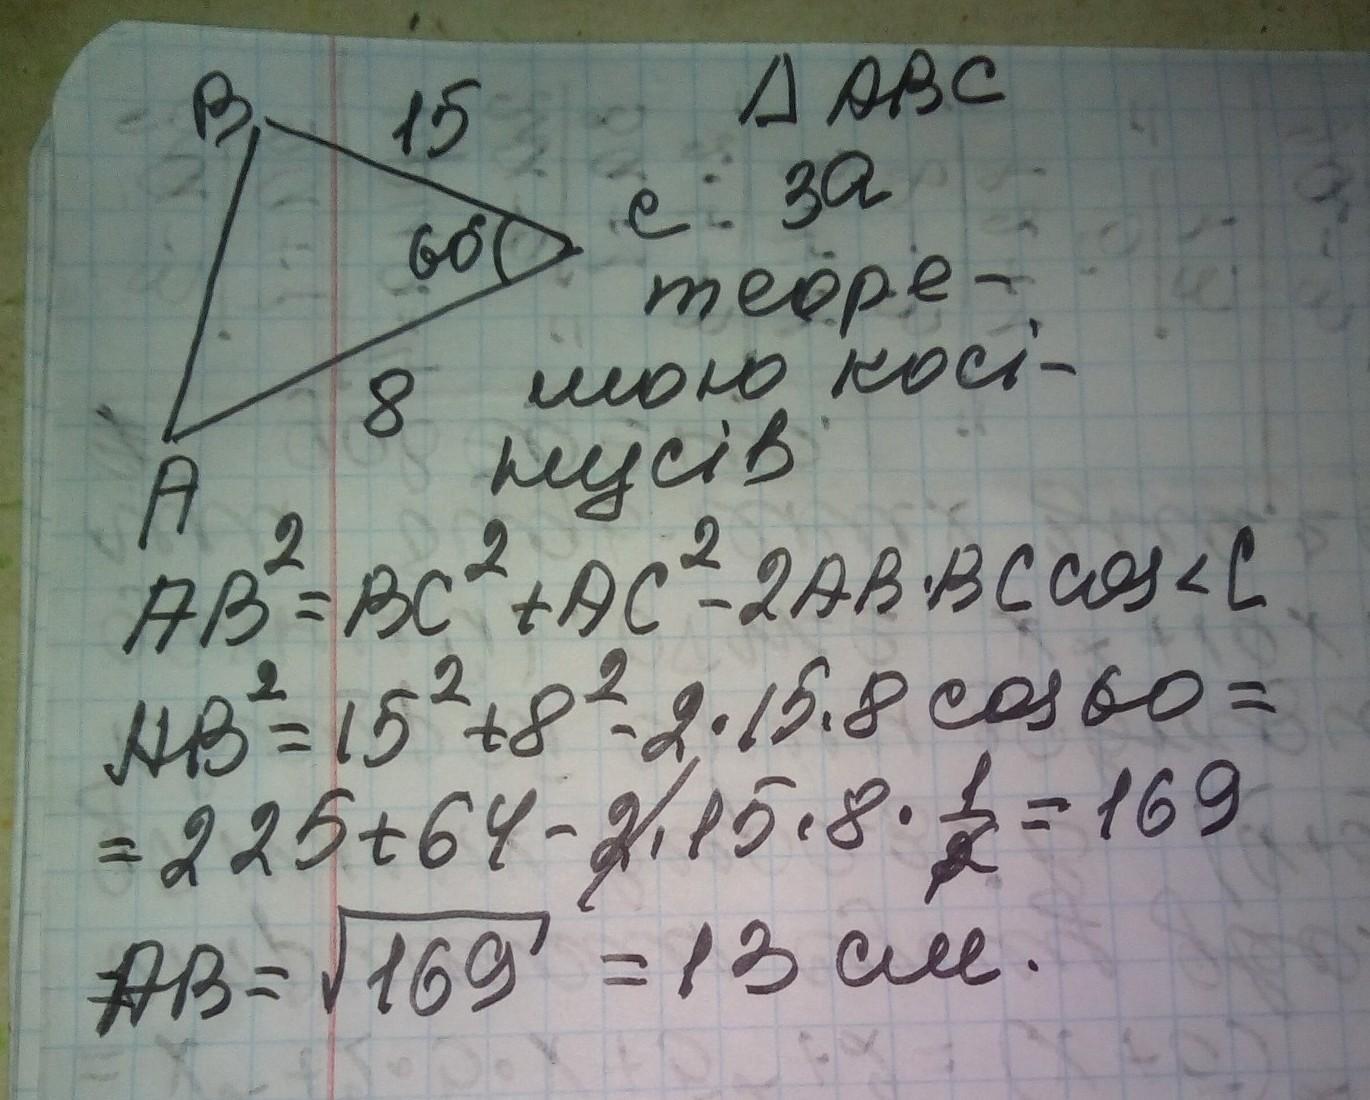 B 15 Δ ABC
60° C За
теоре-
8 мою косі-
нусів
A
AB² = BC² + AC² - 2AB·BC cos < C
AB² = 15² + 8² - 2·15·8 cos 60 =
= 225 + 64 - 2·15·8·1/2 = 169
AB = √169 = 13 см.